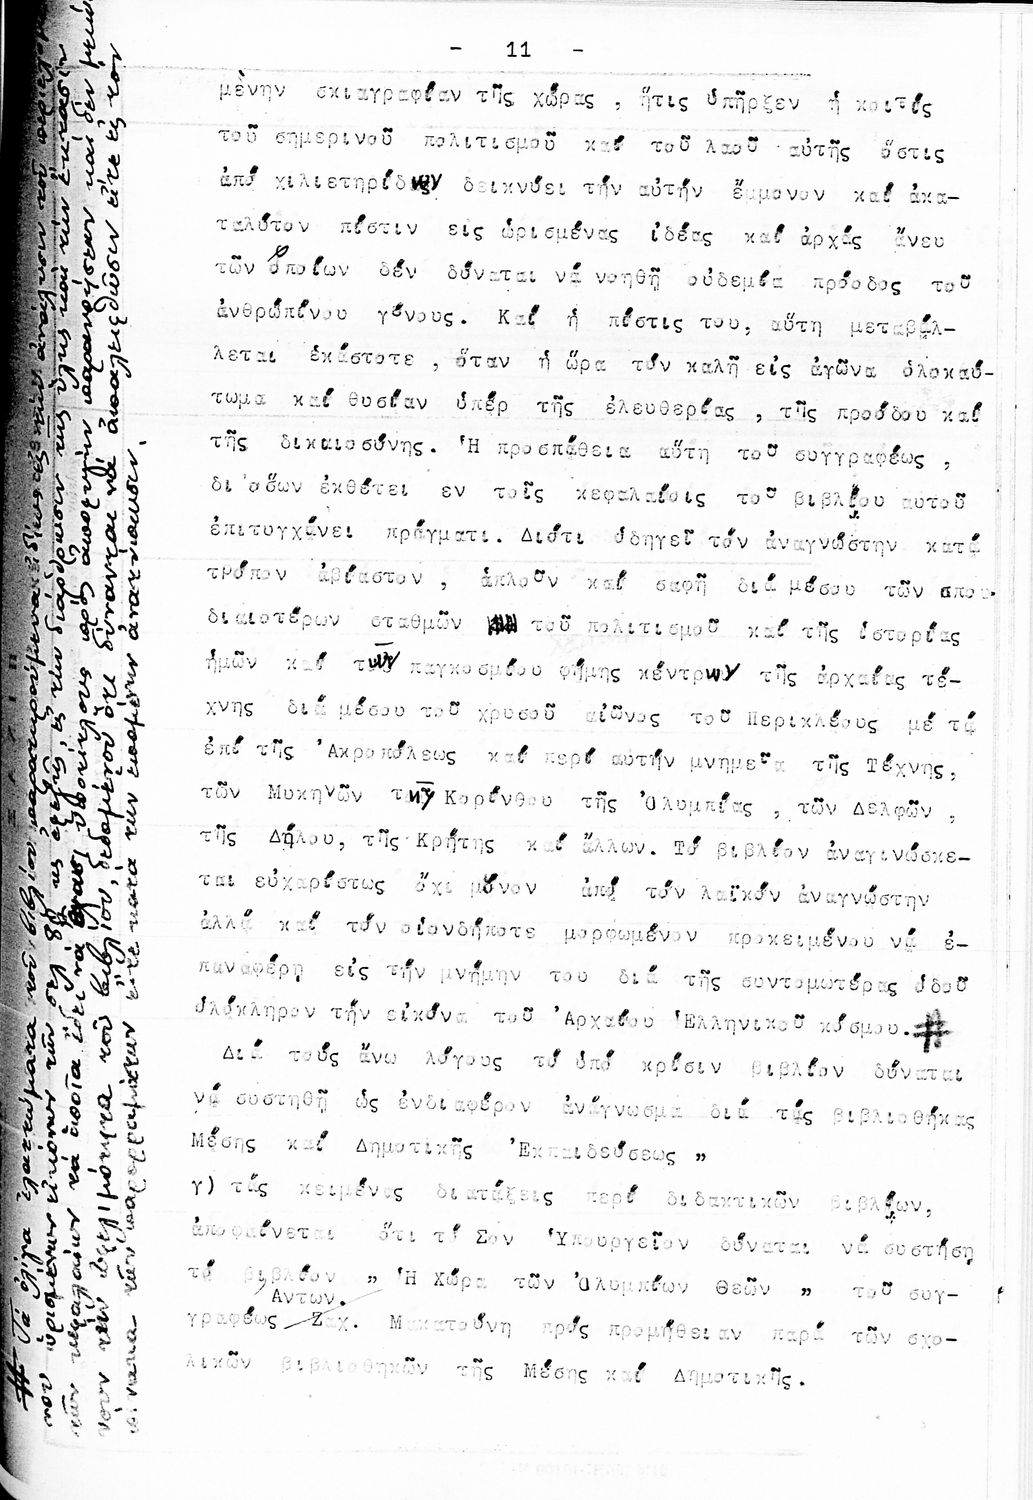 - 11 -
μένην σκιαγραφίαν τῆς χώρας , ἥτις ὑπῆρξεν ἡ κοιτίς
τοῦ σημερινοῦ πολιτισμοῦ καί τοῦ λαοῦ αὐτῆς ὅστις
ἀπό χιλιετηρίδων δεικνύει τήν αὐτήν ἔμμονον καί ἀκα-
ταλύτον πίστιν εἰς ὡρισμένας ἰδέας καί ἀρχάς ἄνευ
τῶν ὁποίων δέν δύναται νά νοηθῇ οὐδεμία πρόοδος τοῦ
ἀνθρωπίνου γένους. Καί ἡ πίστις του, αὕτη μεταβάλ-
λεται ἑκάστοτε , ὅταν ἡ ὥρα τόν καλῇ εἰς ἀγῶνα ὁλοκαύ-
τωμα καί θυσίαν ὑπέρ τῆς ἐλευθερίας , τῆς προόδου καί
τῆς δικαιοσύνης. Ἡ προσπάθεια αὕτη τοῦ συγγραφέως ,
δι'ὅσων ἐκθέτει εν τοῖς κεφαλαίοις τοῦ βιβλίου αυτοῦ
ἐπιτυγχάνει πράγματι. Διότι ὁδηγεῖ τόν ἀναγνώστην κατά
τρόπον ἀβίαστον , ἁπλοῦν καί σαφῆ διά μέσου τῶν σπου-
διαιοτέρων σταθμῶν τοῦ πολιτισμοῦ καί τῆς ἱστορίας
ἡμῶν καί τῶν παγκοσμίου φήμης κέντρων τῆς ἀρχαίας τέ-
χνης διά μέσου τοῦ χρυσοῦ αἰῶνος τοῦ Περικλέους μέ τά
ἐπί τῆς Ἀκροπόλεως καί περί αὐτήν μνημεῖα τῆς Τέχνης,
τῶν Μυκηνῶν τῆς Κορίνθου τῆς Ὀλυμπίας , τῶν Δελφῶν ,
τῆς Δήλου, τῆς Κρήτης καί ἄλλων. Τό βιβλίον ἀναγινώσκε-
ται εὐχαρίστως ὄχι μόνον ἀπό τόν λαϊκόν ἀναγνώστην
ἀλλά καί τόν οἱονδήποτε μορφωμένον προκειμένου νά ἐ-
παναφέρη εἰς τήν μνήμην του διά τῆς συντομωτέρας ὁδοῦ
ὁλόκληρον τήν εἰκόνα τοῦ Ἀρχαίου Ἑλληνικοῦ κόσμου. #
Διά τούς ἄνω λόγους τό ὑπό κρίσιν βιβλίον δύναται
νά συστηθῇ ὡς ἐνδιαφέρον ἀνάγνωσμα διά τάς βιβλιοθήκας
Μέσης καί Δημοτικῆς Ἐκπαιδεύσεως "
γ) τάς κειμένας διατάξεις περί διδακτικῶν βιβλίων,
ἀποφαίνεται ὅτι τό Σον Ὑπουργεῖον δύναται νά συστήση
τό βιβλίον " Ἡ Χώρα τῶν Ὀλυμπίων Θεῶν " τοῦ συγ-
Αντων.
γραφέως Ζαχ. Μακατούνη πρός προμήθειαν παρά τῶν σχο-
λικῶν βιβλιοθηκῶν τῆς Μέσης καί Δημοτικῆς.
# Τά ὀλίγα ἐλαττώματα τοῦ βιβλίου παρατηρούμενα
ὡρισμένων εἰκόνων τῶν σελ. 8 εἰς τήν διάρθρωσιν τῆς ὕλης καί τήν ἔκτασιν
τῶν κεφαλαίων τά ὁποῖα πρός
τήν ὠφελιμότητα τοῦ βιβλίου, δεδομένου ὅτι δύνανται νά ἀπαλειφθῶσιν εἴτε ἐκ τῶν
τῶν παρορραμάτων εἴτε κατά τήν ἑπομένην ἀνατύπωσιν.